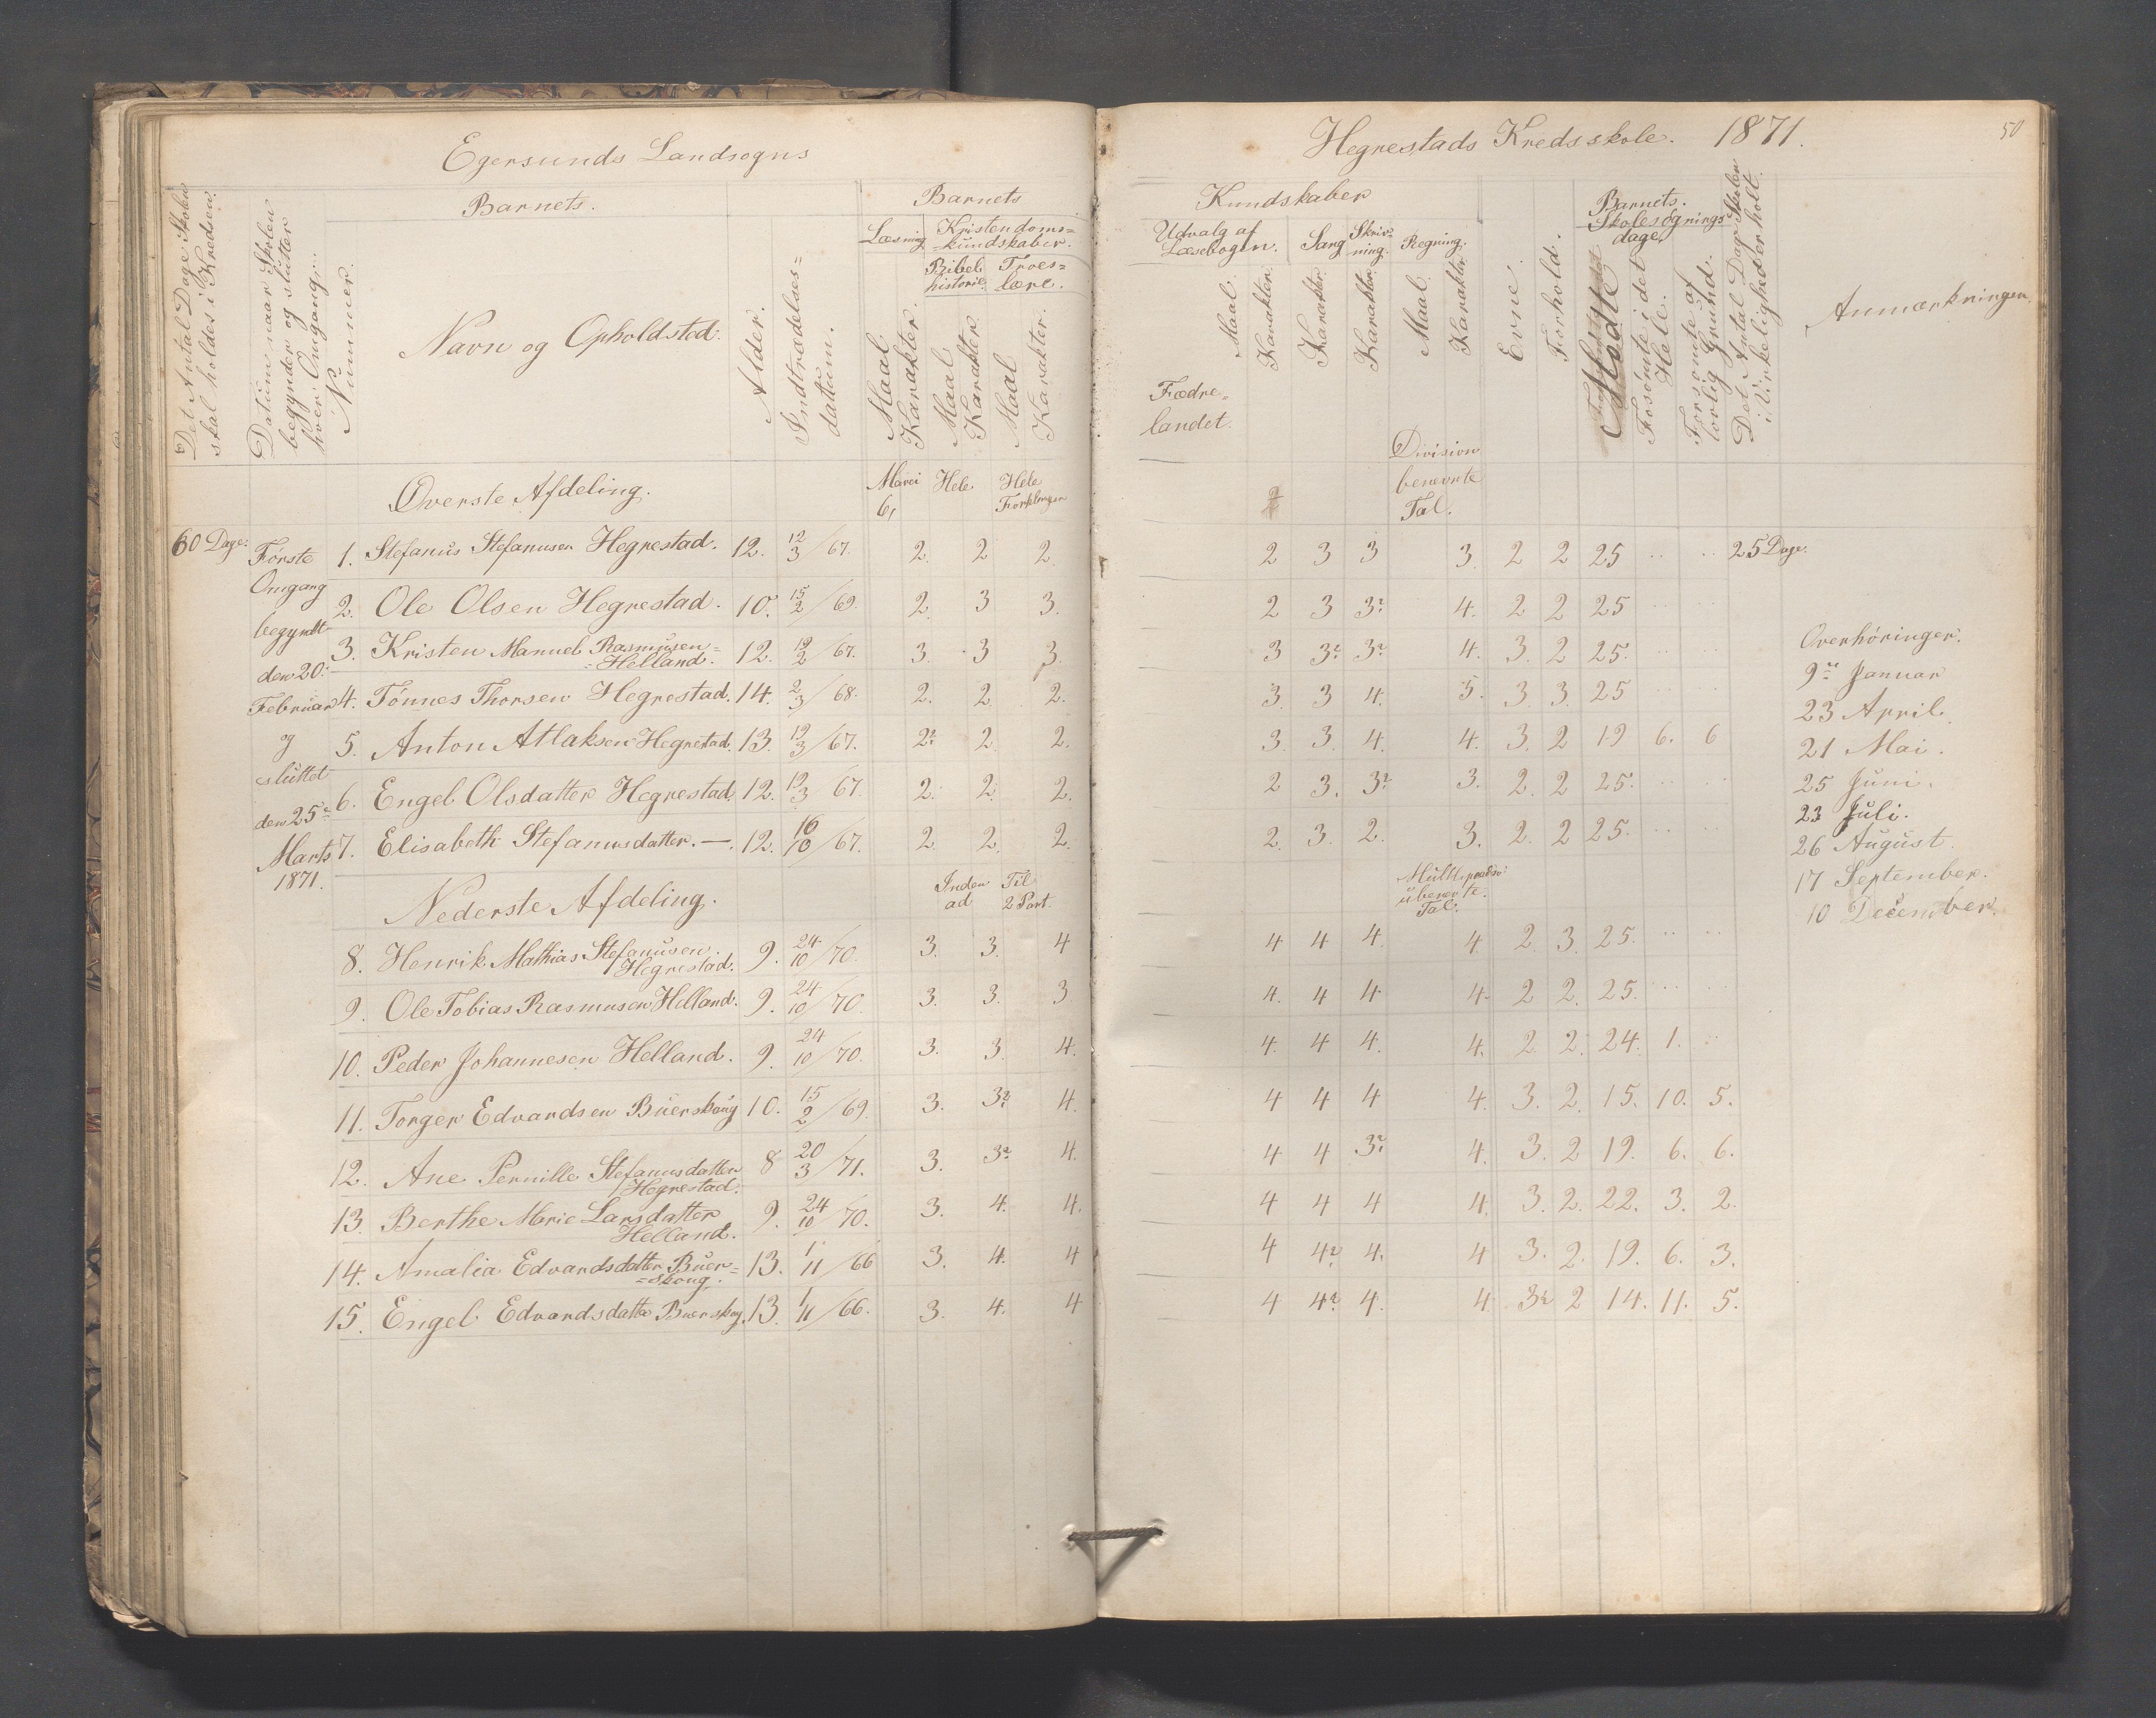 Egersunds Landsogns
Hegrestads Kredsskole. 1871.
50
Det Antal Dage Skolen skal holdes i Kredsen.
Datum naar Skolen begynder og slutter hver Omgang.
Nummer.
Barnets.
Navn og Opholdsted.
Alder.
Indtrædelses= datum.
Barnets
Læsning
Kristendoms= =kundskaber.
Bibel historie.
Troes= lære.
Maal Karakter.
Maal Karakter.
Maal Karakter.
Kundskaber
Udvalg af Læsebogen.
Sang
Skriv= ning.
Regning.
Maal. Karakter.
Karakter.
Karakter.
Maal. Karakter.
Evne.
Forhold.
Barnets. Skolesøgnings dage.
Mødte
Fosömte i det Hele.
Forsömte af lovlig Grund.
Det Antal Dage Skolen i Virkeligheden holdt.
Anmærkninger.
Fædre= landet.
Division benevnte Tal.
Øverste Afdeling.
6, Hele Hele
60 Dage:
Første Omgang begyndt den 20: Februar og sluttet den 25: Marts 1871.
1. Stefanus Stefanusen Hegrestad. 12. 12/3/67. 2. 2 2. 2 3 3 3. 2 2 25 .. .. 25 Dage.
2. Ole Olsen Hegrestad. 10. 15/2/69. 2. 3 3. 2 3 3? 4. 2 2 25 .. ..
3. Kristen Manuel Rasmusen= =Helland. 12. 19/2/67. 3. 3 3. 3 3? 3? 4. 3. 2 25. .. ..
4. Tönnes Thorsen Hegrestad. 14. 2/3/68. 2. 2. 2. 3. 3 4. 5. 3 3. 25 .. ..
5. Anton Atlaksen Hegrestad. 13. 19/3/67. 2? 2. 2. 3. 3. 4. 4. 3. 2 19 6. 6
6. Engel Olsdatter Hegrestad. 12. 19/3/67. 2. 2. 2. 2 3. 3? 3. 2. 2 25. .. ..
7. Elisabeth Stefanusdatter. —. 12. 16/10/67. 2. 2. 2. 2. 3. 2. 3. 2. 2 25. .. ..
Nederste Afdeling.
Inden ad Til 2 Part.
Tal.
8. Henrik Mathias Stefanusen. Hegrestad. 9. 24/10/70. 3. 3. 4 4 4 4. 4 2. 3. 25. .. ..
9. Ole Tobias Rasmusen Helland. 9. 24/10/70. 3. 3. 3 4. 4 4 4. 2 2. 25. .. ..
10. Peder Johannesen Helland. 9. 24/10/70. 3. 3. 4. 4. 4 4. 4. 2 2. 24. 1. ..
11. Torger Edvardsen Buerskoug 10. 15/2/69. 3. 3? 4. 4 4 4 4. 3. 2. 15. 10. 5.
12. Ane Pernille Stefanusdatter Hegrestad. 8 20/3/71. 3. 3? 4. 4 4 3? 4. 3. 2 19. 6. 6.
13. Berthe Marie Larsdatter Helland. 9. 24/10/70. 3. 4. 4. 4 4 4 4. 3. 2. 22. 3. 2.
14. Amalia Edvardsdatter Buer= =skoug. 13. 1/11/66 3. 4. 4 4 4? 4. 4 3. 2. 19. 6. 3.
15. Engel Edvardsdatter Buerskog. 13. 1/11/66. 3. 4. 4 4 4? 4. 4 3? 2 14. 11. 5.
Overhöringer.
9de Januar
23 April.
21 Mai.
25 Juni.
23 Juli.
26 August.
17 September.
10 December.